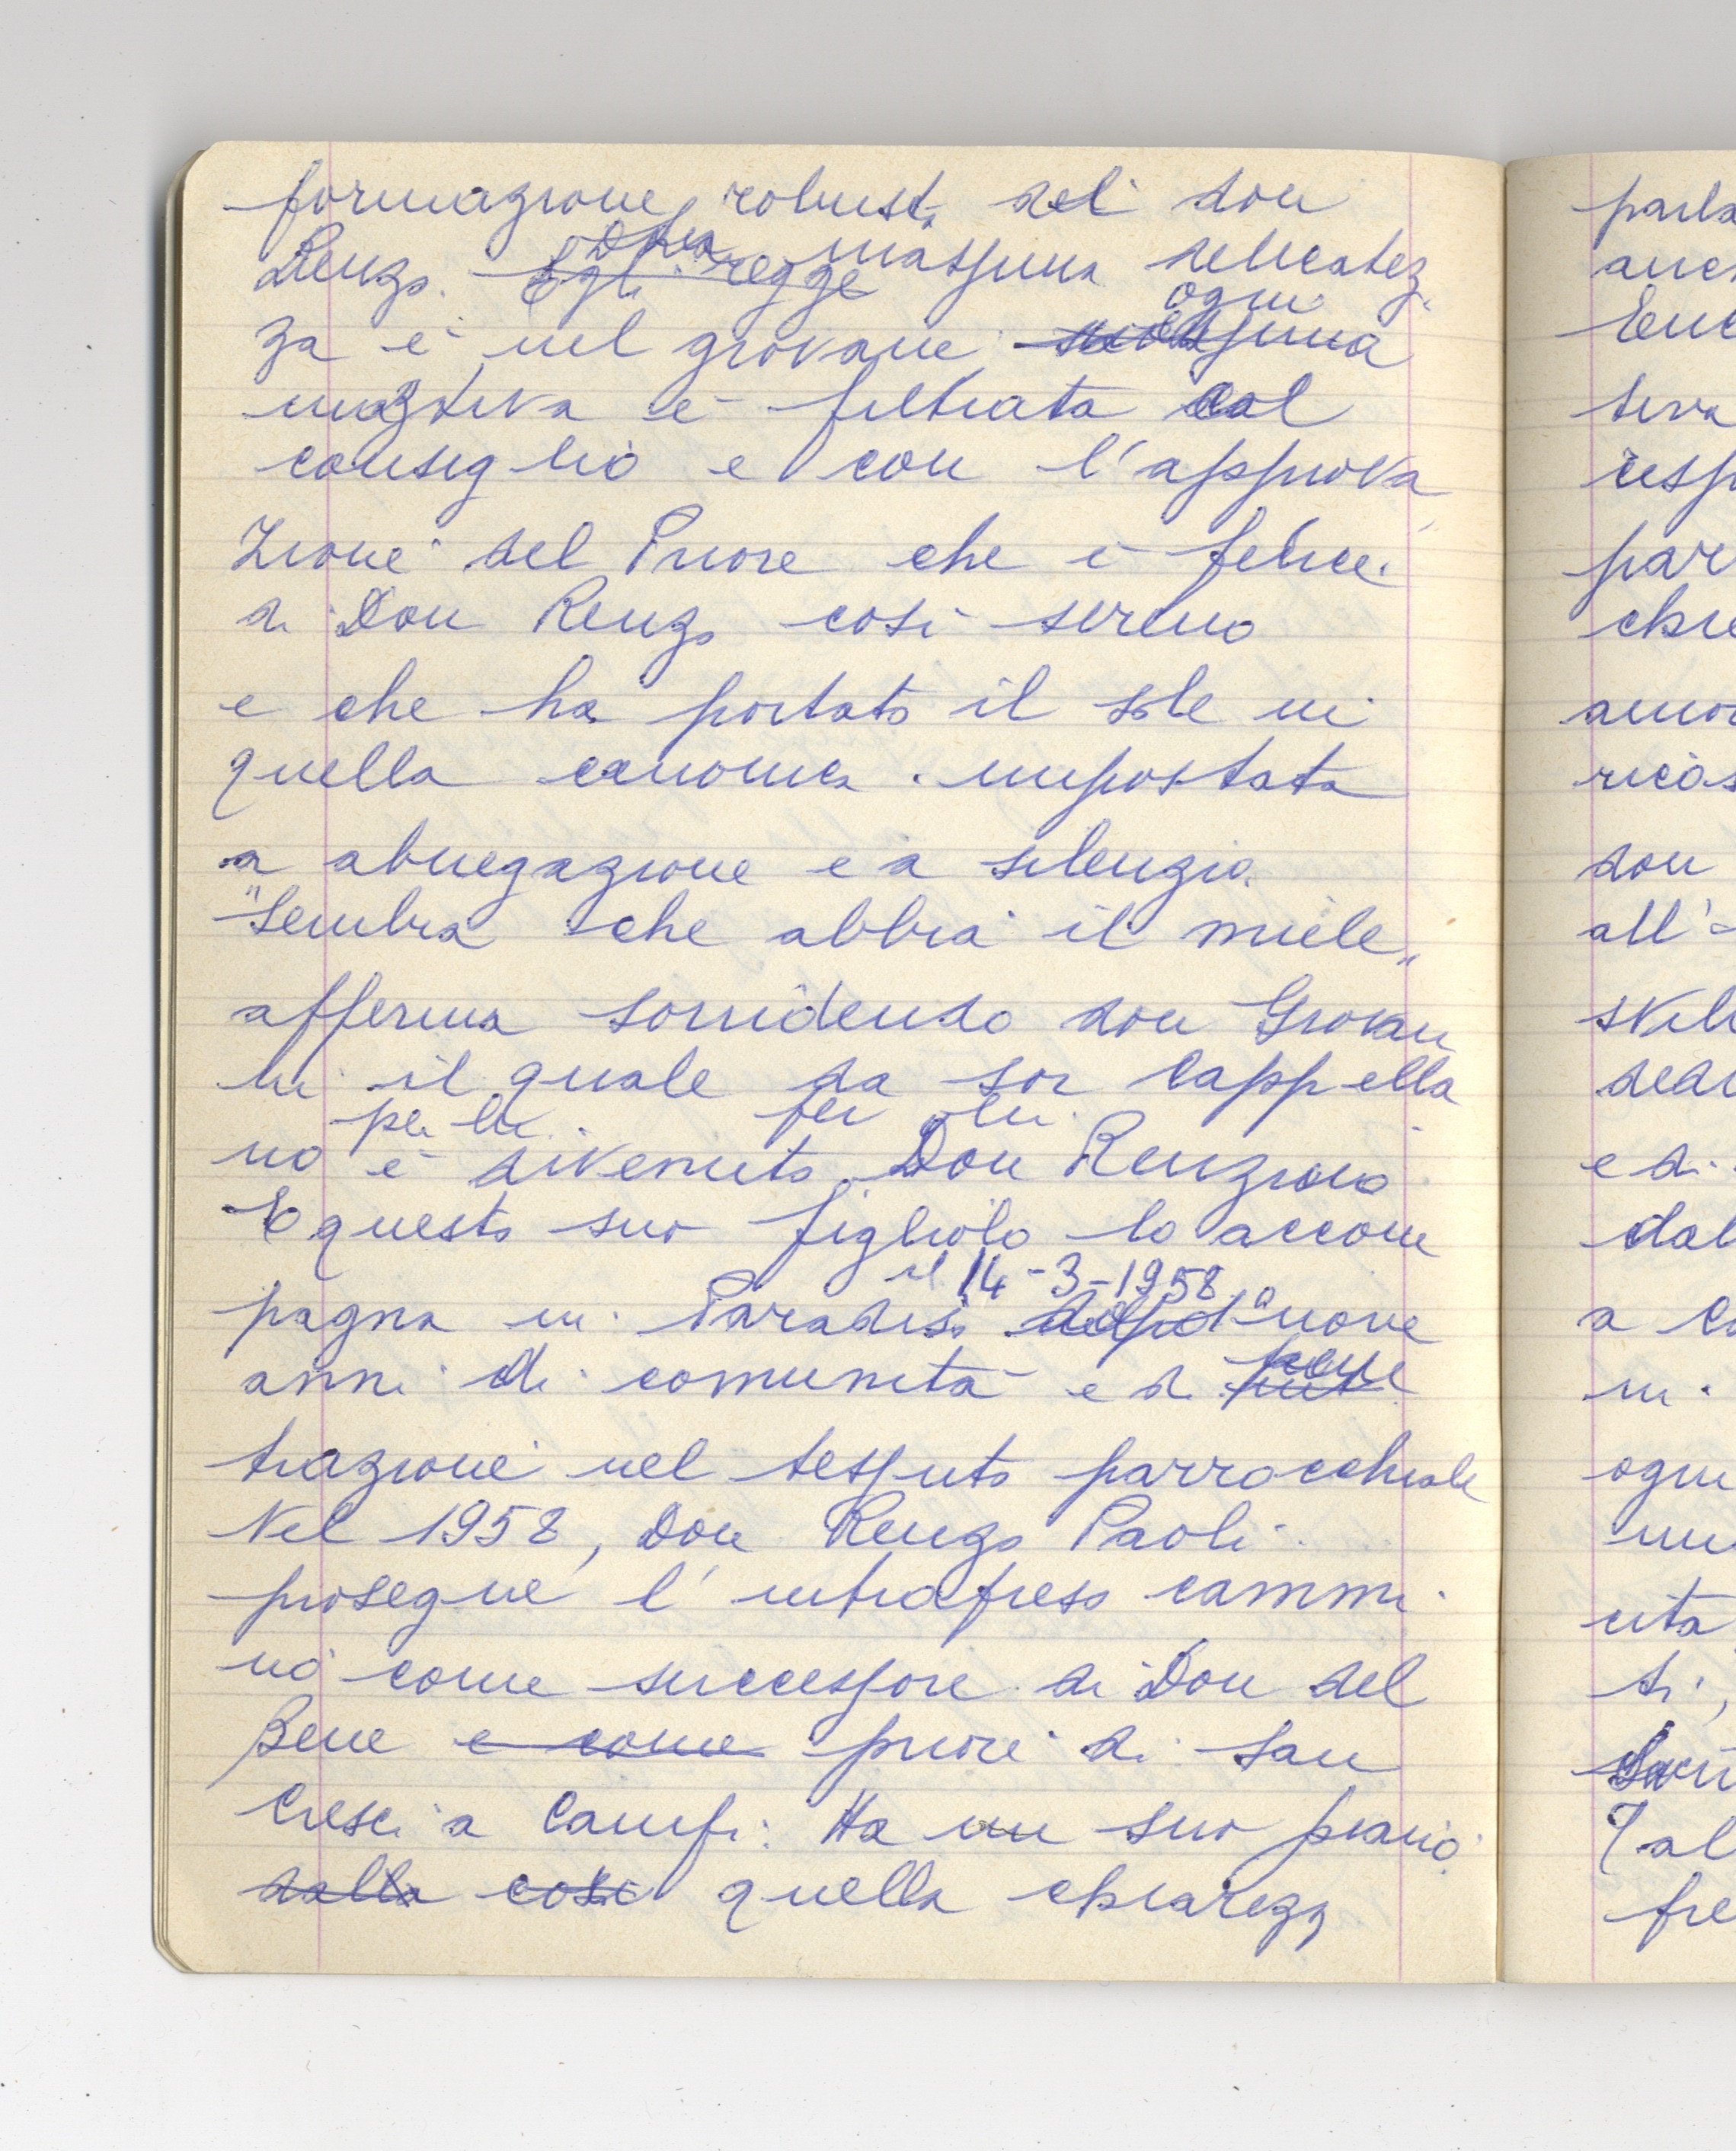 formazione robusta del don
Renzo. Egli regge Una massima delicatez
za è nel giovane massima ogni
iniziativa è filtrata col
consiglio e con l'approva
zione del Priore che è felice
di Don Renzo così sereno
e che ha portato il sole in
quella canonica impostata
a abnegazione e a silenzio.
"Sembra che abbia il miele"
afferma sorridendo don Giovan
ni il quale da sor Cappella
no è per lui divenuto per lui Don Renzino
E questo suo figliolo lo accom
pagna in Paradiso il 14-3-1958 dopo nove
anni di comunità e di pene
trazione nel tessuto parrocchiale
Nel 1958, Don Renzo Paoli
prosegue l'intrapreso cammi
no come successore di Don del
Bene e come priore di San
Cresci a Campi. Ha un suo piano
dalla così quella chiarezz
parla
anch
tiva
risp
par
chie
amor
don
all'
e di
dal
a Ca
in
ogni
ti,
fre